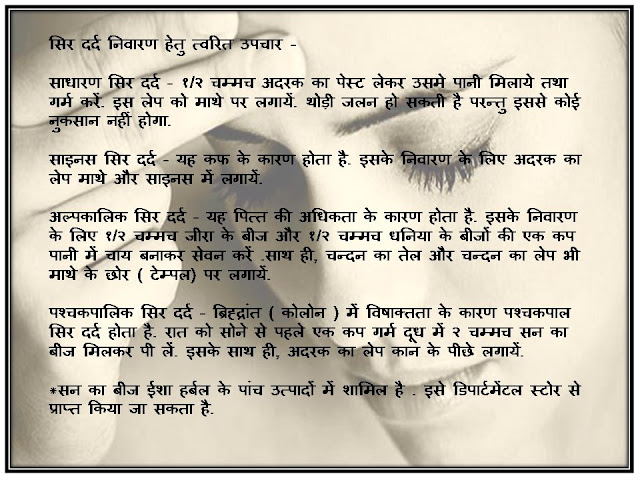 सिर दर्द निवारण हेतु त्वरित उपचार -
साधारण सिर दर्द - १/२ चम्मच अदरक का पेस्ट लेकर उसमे पानी मिलाये तथा
गर्म करें. इस लेप को माथे पर लगायें. थोड़ी जलन हो सकती है परन्तु इससे कोई
नुकसान नहीं होगा.
साइनस सिर दर्द - यह कफ के कारण होता है. इसके निवारण के लिए अदरक का
लेप माथे और साइनस में लगायें.
अल्पकालिक सिर दर्द - यह पित्त की अधिकता के कारण होता है. इसके निवारण
के लिए १/२ चम्मच जीरा के बीज और १/२ चम्मच धनिया के बीजों की एक कप
पानी में चाय बनाकर सेवन करें .साथ ही, चन्दन का तेल और चन्दन का लेप भी
माथे के छोर ( टेम्पल) पर लगायें.
पश्चकपालिक सिर दर्द - ब्रिह्द्रांत ( कोलोन ) में विषाक्तता के कारण पश्चकपाल
सिर दर्द होता है. रात को सोने से पहले एक कप गर्म दूध में २ चम्मच सन का
बीज मिलकर पी लें. इसके साथ ही, अदरक का लेप कान के पीछे लगायें.
*सन का बीज ईशा हर्बल के पांच उत्पादों में शामिल है . इसे डिपार्टमेंटल स्टोर से
प्राप्त किया जा सकता है.